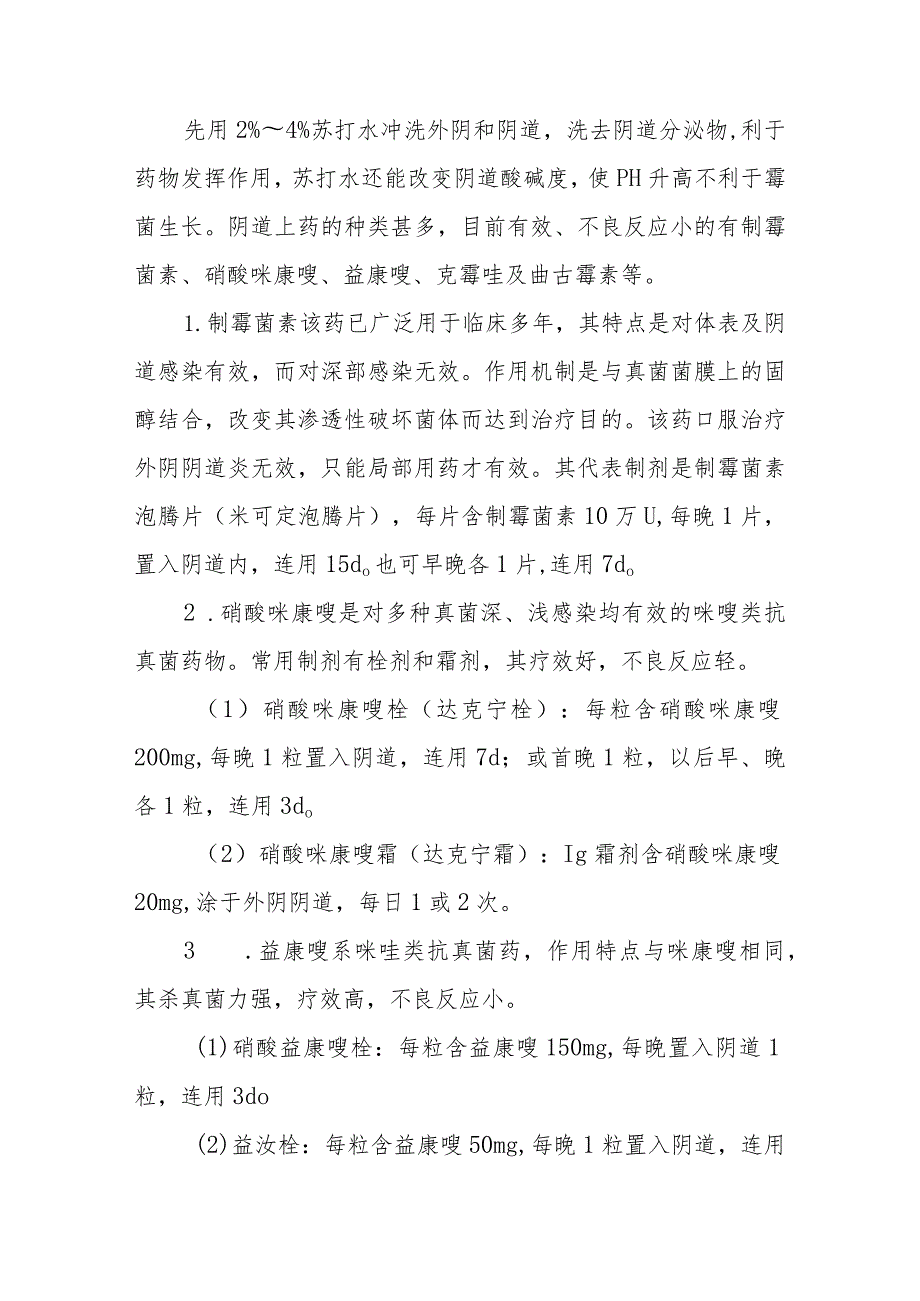 先用 2%～4%苏打水冲洗外阴和阴道，洗去阴道分泌物,利于
药物发挥作用，苏打水还能改变阴道酸碱度，使 PH 升高不利于霉
菌生长。阴道上药的种类甚多，目前有效、不良反应小的有制霉
菌素、硝酸咪康嗖、益康嗖、克霉哇及曲古霉素等。
1.制霉菌素该药已广泛用于临床多年，其特点是对体表及阴
道感染有效，而对深部感染无效。作用机制是与真菌菌膜上的固
醇结合，改变其渗透性破坏菌体而达到治疗目的。该药口服治疗
外阴阴道炎无效，只能局部用药才有效。其代表制剂是制霉菌素
泡腾片（米可定泡腾片），每片含制霉菌素 10 万 U,每晚 1 片，
置入阴道内，连用 15d。也可早晚各 1 片,连用 7d。
2 .硝酸咪康嗖是对多种真菌深、浅感染均有效的咪嗖类抗
真菌药物。常用制剂有栓剂和霜剂，其疗效好，不良反应轻。
（1）硝酸咪康嗖栓（达克宁栓）：每粒含硝酸咪康嗖
200mg,每晚 1 粒置入阴道，连用 7d；或首晚 1 粒，以后早、晚
各 1 粒，连用 3d。
（2）硝酸咪康嗖霜（达克宁霜）：Ig 霜剂含硝酸咪康嗖
20mg,涂于外阴阴道，每日 1 或 2 次。
3 .益康嗖系咪哇类抗真菌药，作用特点与咪康嗖相同，
其杀真菌力强，疗效高，不良反应小。
(1)硝酸益康嗖栓：每粒含益康嗖 150mg,每晚置入阴道 1
粒，连用 3do
(2)益汝栓：每粒含益康嗖 50mg,每晚 1 粒置入阴道，连用